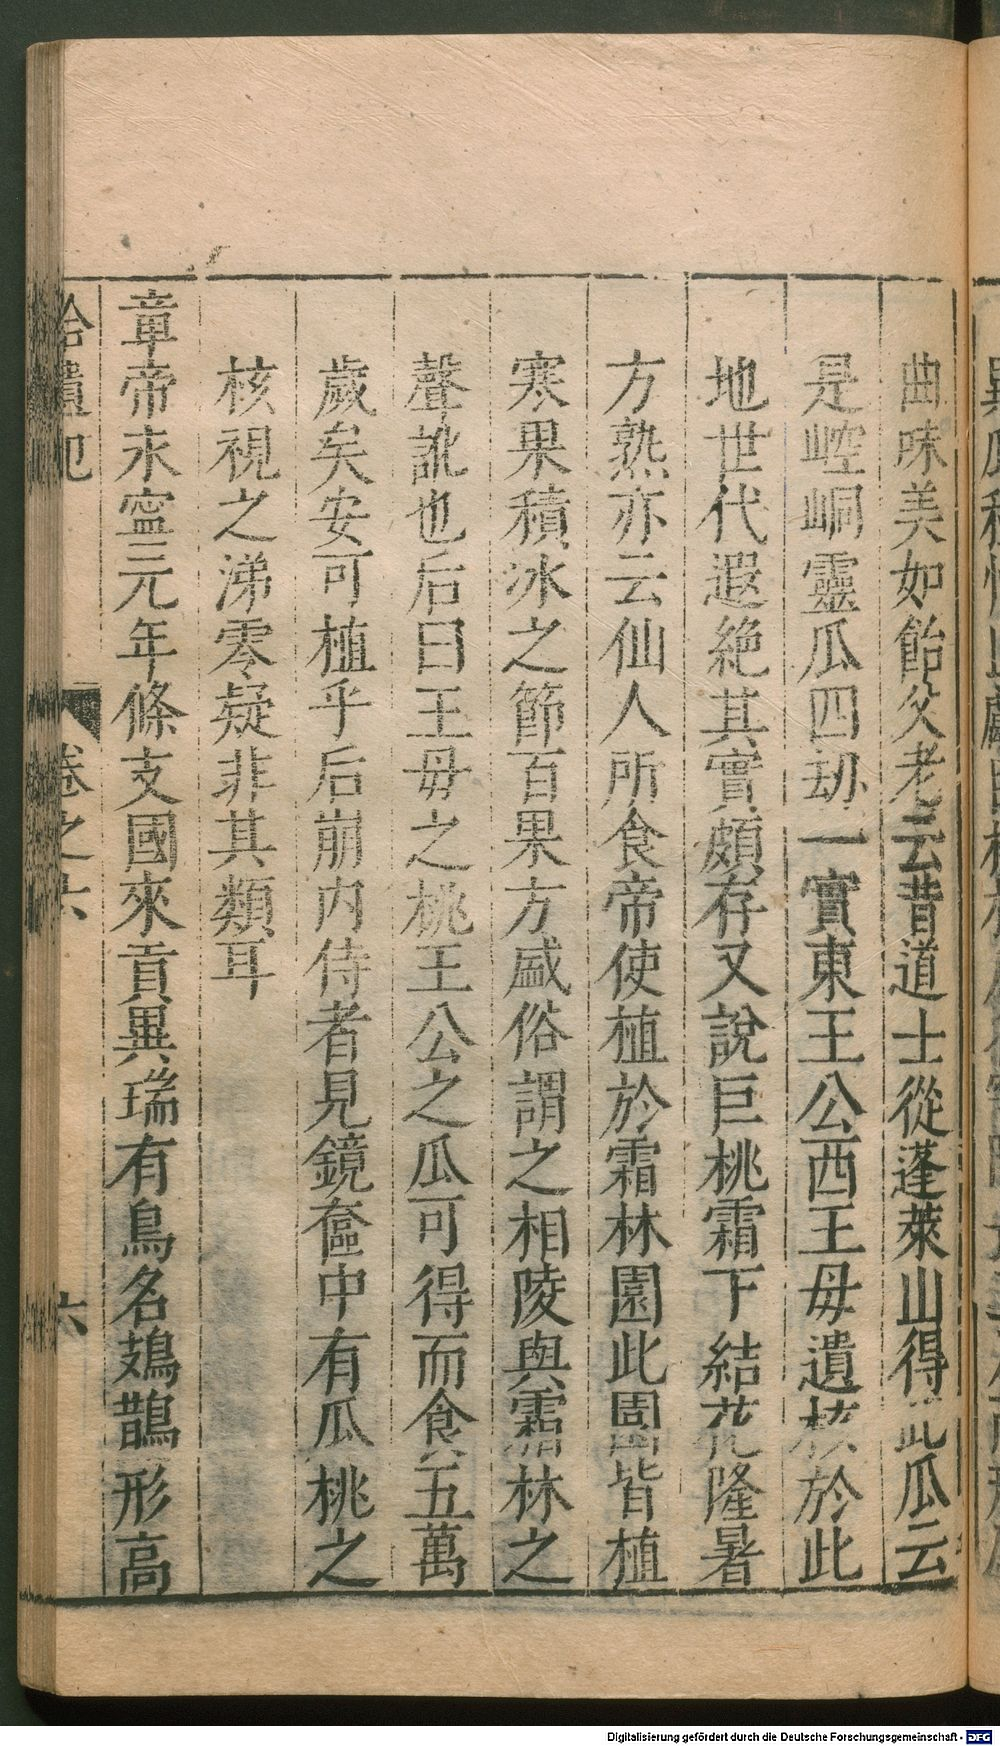 曲味美如飴父老云昔道士從蓬萊山得此瓜云
是崆峒靈瓜四劫一實東王公西王毋遺核於此
地世代遐絶其實頗存又說巨桃霜下結花隆暑
方熟亦云仙人所食帝使植於霜林園此園皆植
寒果積冰之節百果方盛俗謂之相陵與霜林之
聲訛也后曰王毋之桃王公之瓜可得而食五萬
歲矣安可植乎后崩内侍者見鏡奩中有瓜桃之
核視之涕零疑非其類耳
章帝永寧元年條支國來貢異瑞有鳥名鳷鵲形高
拾遺記 卷之六 六
Digitalisierung gefördert durch die Deutsche Forschungsgemeinschaft - DFG